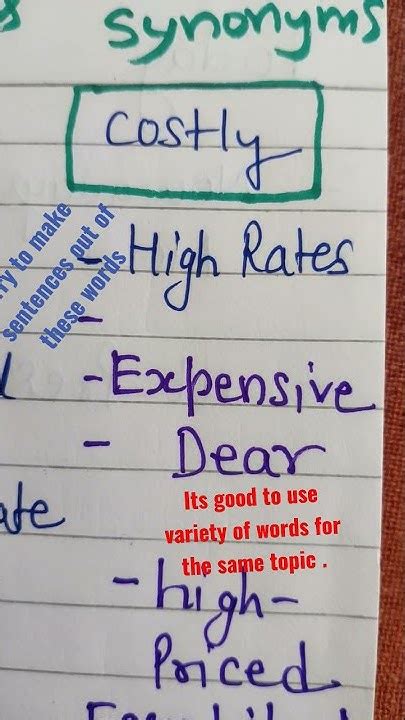 synonyms
Costly
Try to make
sentences out of
these words
- High Rates
-
- Expensive
- Dear
Its good to use
variety of words for
the same topic .
- high-
Priced